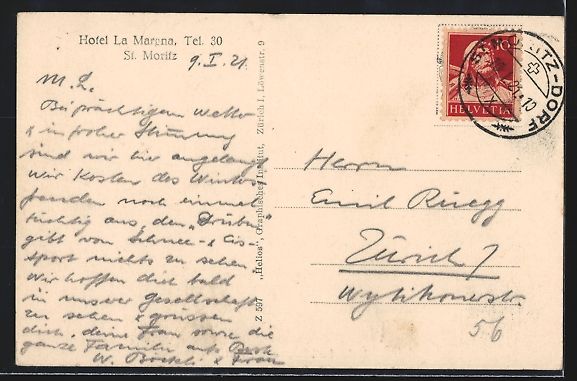 Hotel La Margna, Tel. 30
St. Moritz
9. I. 21.
M. L.
Bei prächtigem Wetter
& in froher Stimmung
sind wir hier angelangt
Wir kosten des Winters
Freuden noch einmal
tüchtig aus, den „Drüben"
gibt von Schnee- & Eis-
sport nichts zu sehen.
Wir hoffen dich bald
in unserer Gesellschaft
zu sehen & grüssen
dich, deine Frau sowie die
ganze Familie aufs Beste
W. & Frau
Z 597 „Helios", Graphisches Institut, Zürich I, Löwenstr. 9
HELVETIA
ST. MORITZ-DORF
Herrn
Emil Ruegg
Zürich 7
Wytikonerstr
56